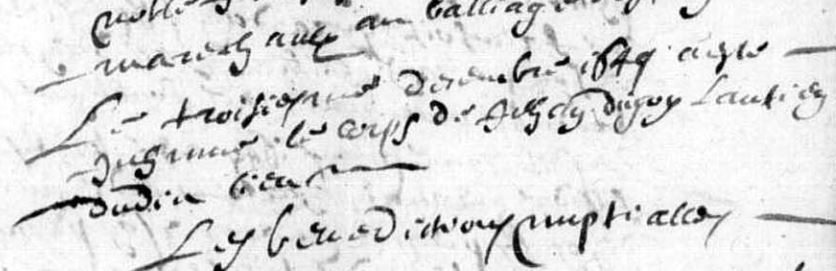 marechaux au balliage
Le troisiesme decembre 1649 a este
inhumé le corps de dugoy lantien
dudit lieu
Les benedictions nuptialles